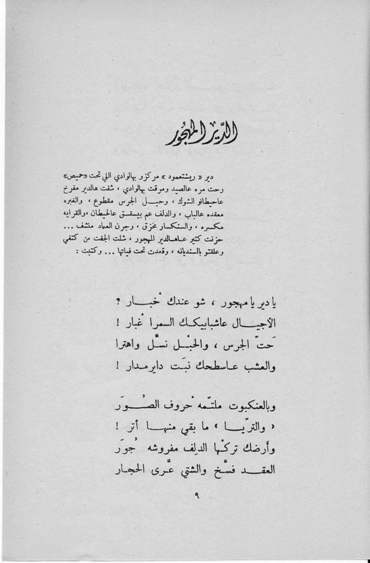 الدّير المهجور
دير « ريشتعمود » مركزو بهالوادي اللي تحت «حميص»
رحت مره عالصيد ومرقت بهالوادي ، شفت هالدير مفرخ
عاحيطانو الشوك ، وحبـل الجرس مقطوع ، والغبره
معقده عالباب ، والدلف عم يسقق عالحيطان ،
مكسره ، والستكـار مخزق ، وجرن العماد منشف ...
حزنت كتير عاهـالدير المهجور ، شلت الجفت من كتفي
وعلقتو بالسنديانه ، وقعدت تحت فياتها ... وكتبت :
يا دير يا مهجور ، شو عندك خْبـار ؟
الأجيـال عاشبابيكـك السمرا غْبار !
حَتّ الجرس ، والحَبْـل نسَّل واهترا
والعشب عـاسطحك نبَت دايرمدار !
وبالعنكبوت ملتمّه حْروف الصُّـوَر
« والتريّـا » ما بقي منهـا أتر !
وأرضك تركـْها الدلف مفروشه جُوَر
العقـد فسَّخ والشتي عَّرى الحجـار
٩